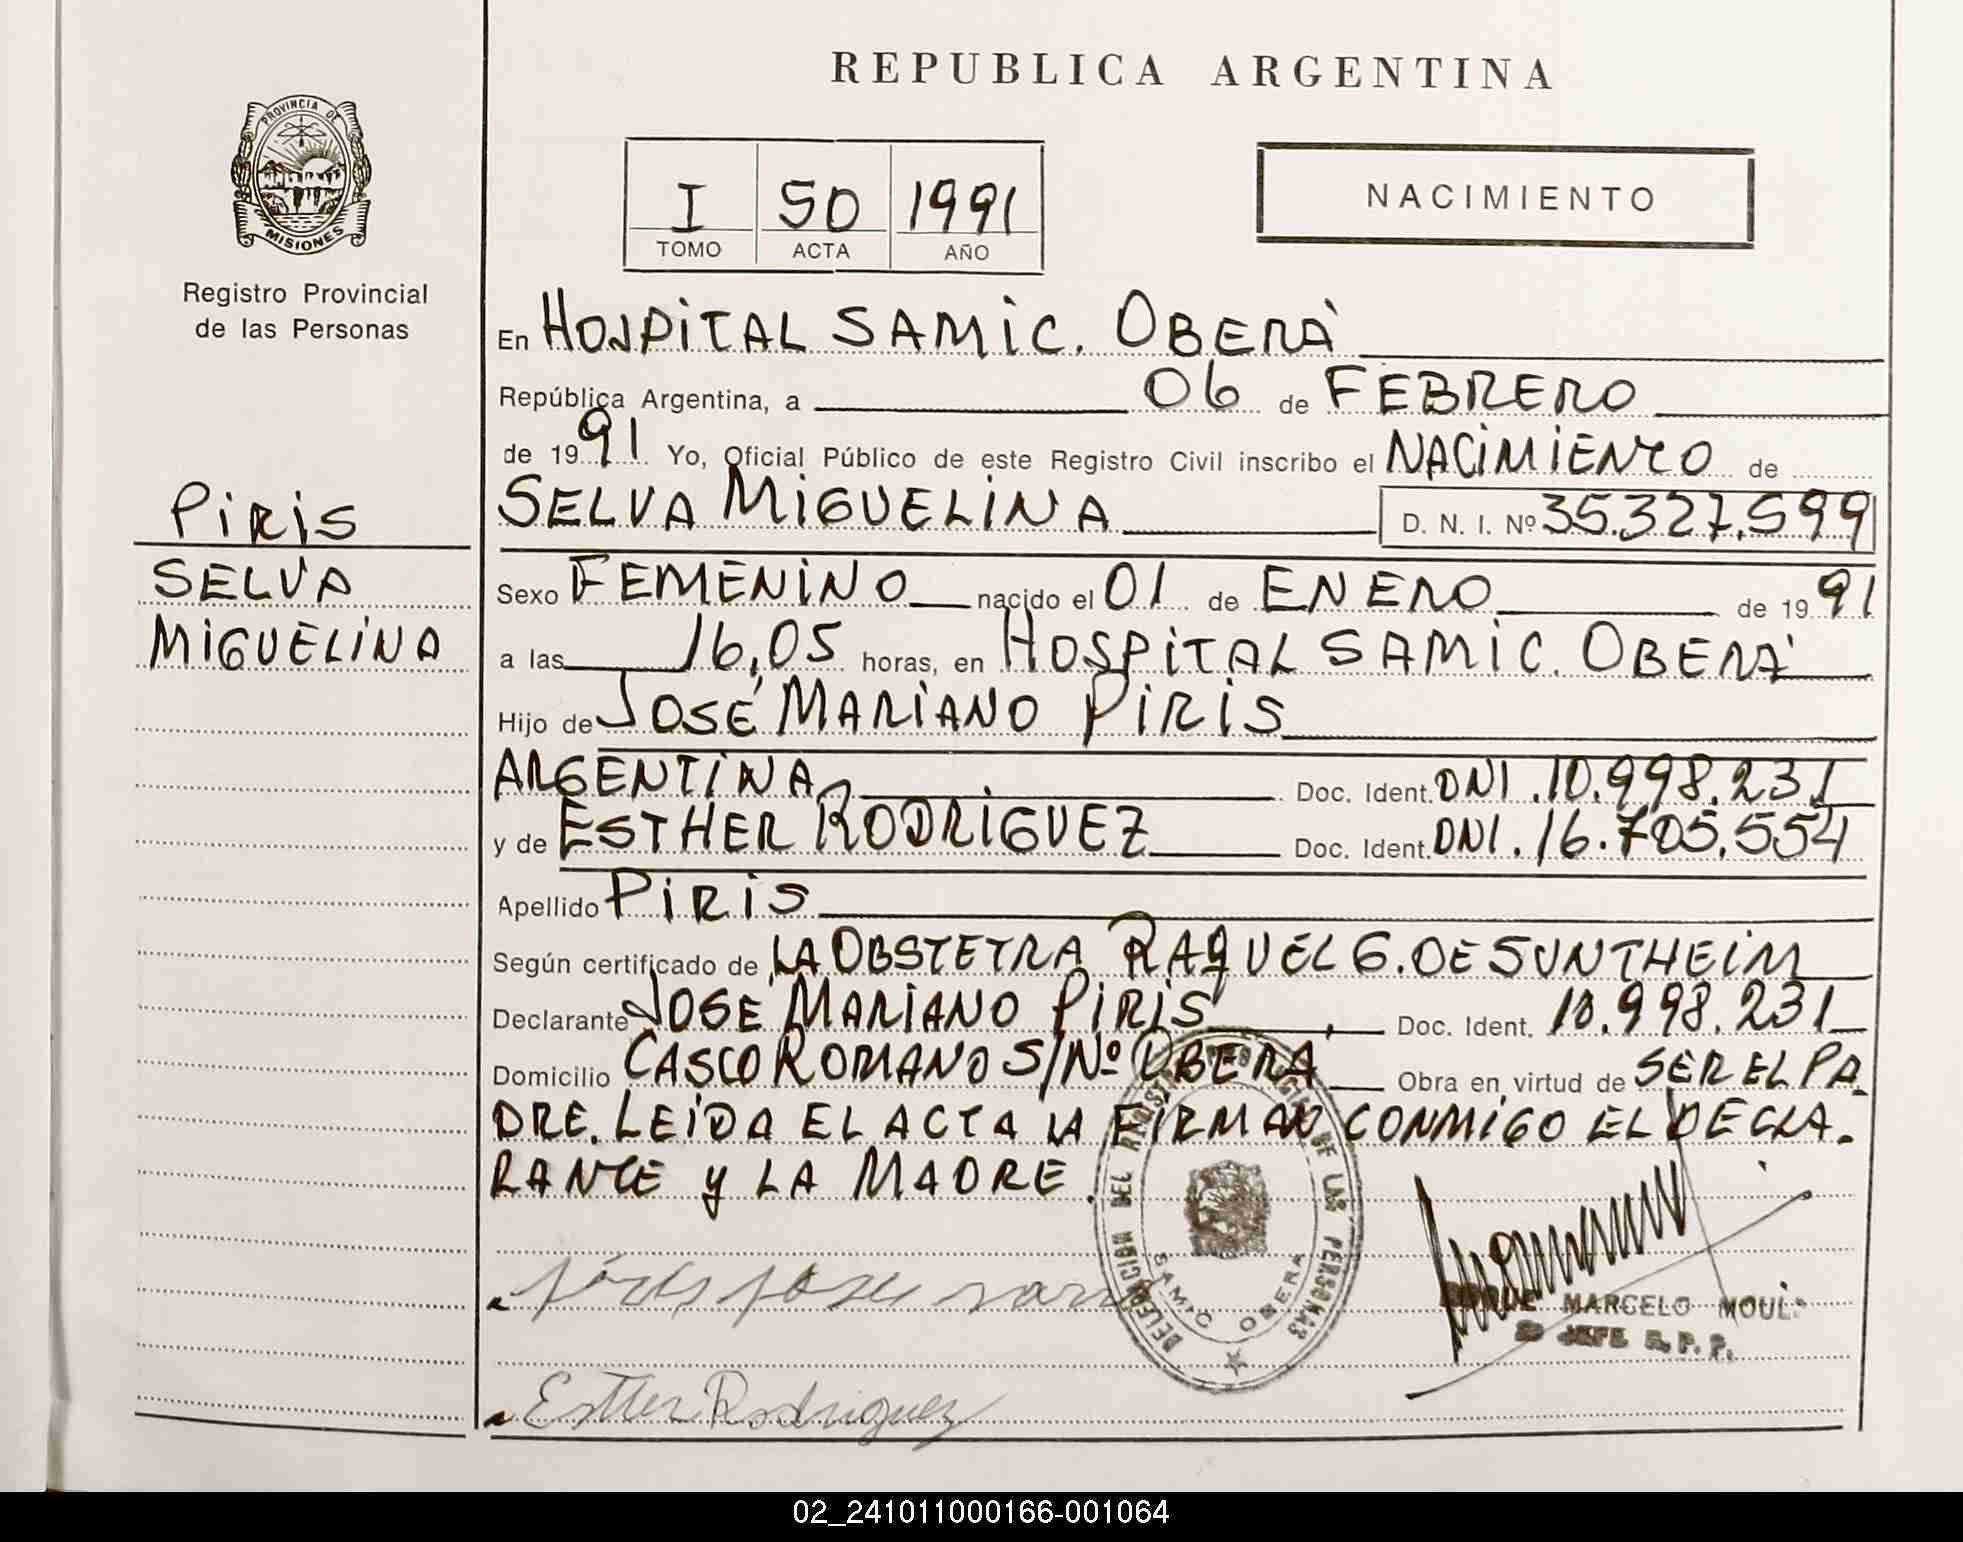 REPUBLICA ARGENTINA
PROVINCIA DE
MISIONES
Registro Provincial
de las Personas
I 50 1991
TOMO ACTA AÑO
NACIMIENTO
PIRIS
SELVA
MIGUELINA
En HOSPITAL SAMIC. OBERÁ
República Argentina, a 06 de FEBRERO
de 1991 Yo, Oficial Público de este Registro Civil inscribo el NACIMIENTO de
SELVA MIGUELINA D. N. I. Nº 35.327.599
Sexo FEMENINO nacido el 01 de ENERO de 1991
a las 16,05 horas, en HOSPITAL SAMIC. OBERÁ
Hijo de JOSÉ MARIANO PIRIS
ARGENTINA Doc. Ident. DNI. 10.998.231
y de ESTHER RODRIGUEZ Doc. Ident. DNI. 16.705.554
Apellido PIRIS
Según certificado de LA OBSTETRA RAQUEL G. DE SUNTHEIM
Declarante JOSE MARIANO PIRIS Doc. Ident. 10.998.231
Domicilio CASCO ROMANO S/Nº OBERA Obra en virtud de SER EL PA
DRE. LEIDA EL ACTA LA FIRMAN CONMIGO EL DECLA-
RANTE y LA MADRE.
DELEGACION DEL DE LAS PERSONAS
SAMIC OBERA
piris jose
MARCELO MOUL
JEFE R. P. P.
Esther Rodriguez
02_241011000166-001064